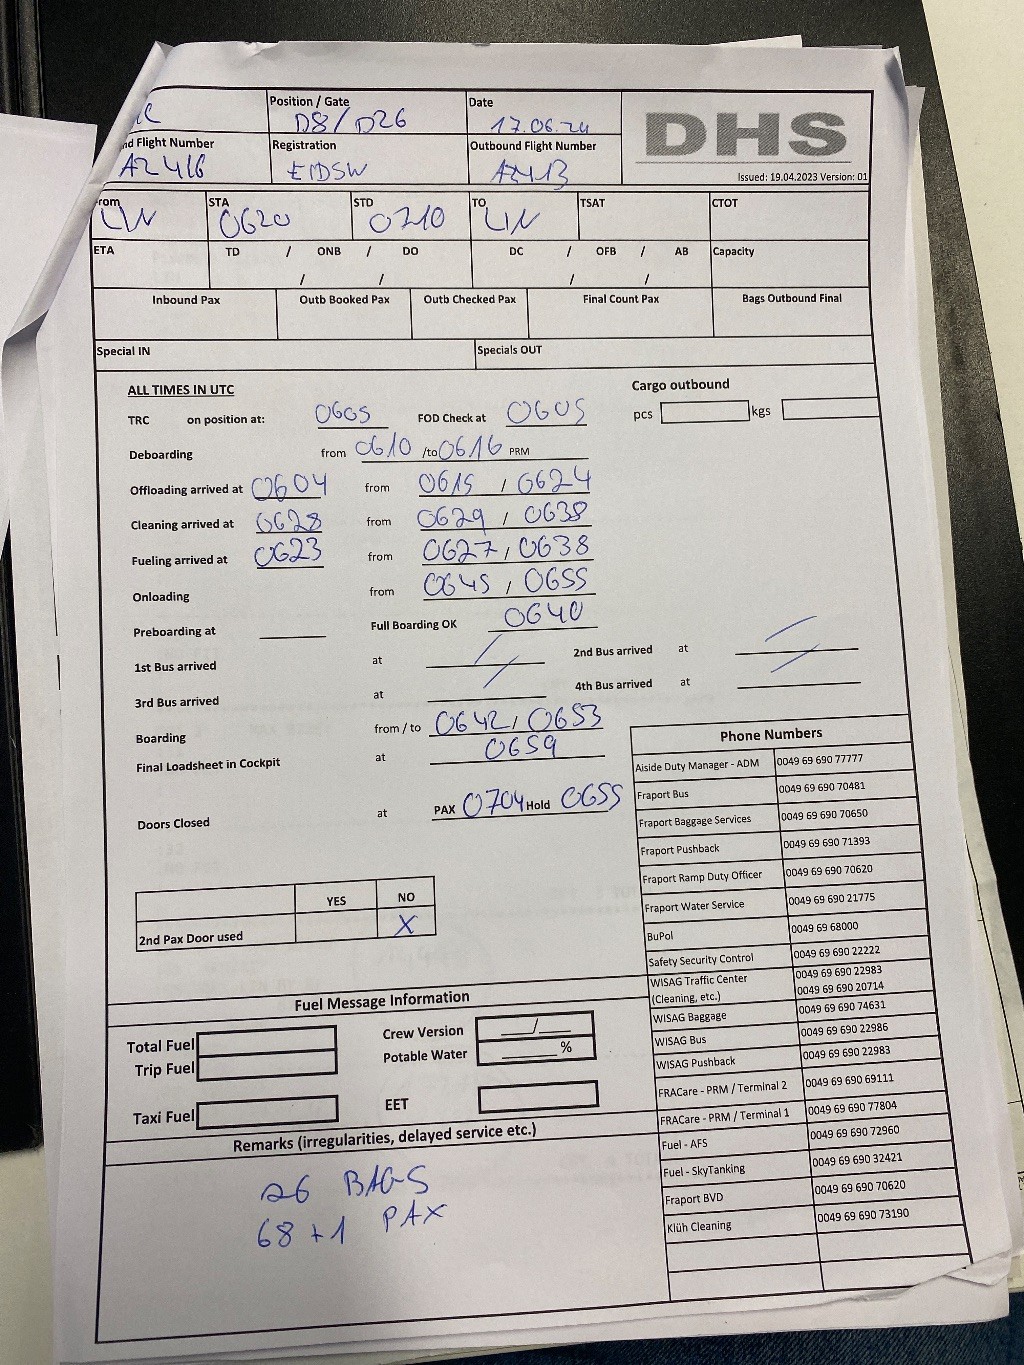 Position / Gate Date
D8/D26 17.06.24 DHS
nd Flight Number Registration Outbound Flight Number
AZ416 EIDSW AZ413 Issued: 19.04.2023 Version: 01
rom STA STD TO TSAT CTOT
LIN 0620 0710 LIN
ETA TD / ONB / DO DC / OFB / AB Capacity
/ / / /
Inbound Pax Outb Booked Pax Outb Checked Pax Final Count Pax Bags Outbound Final
Special IN Specials OUT
ALL TIMES IN UTC Cargo outbound
TRC on position at: 0605 FOD Check at 0605 pcs kgs
Deboarding from 0610 /to 0616 PRM
Offloading arrived at 0604 from 0615 / 0624
Cleaning arrived at 0628 from 0629 / 0638
Fueling arrived at 0623 from 0627 / 0638
Onloading from 0645 / 0655
Preboarding at Full Boarding OK 0640
1st Bus arrived at 2nd Bus arrived at
3rd Bus arrived at 4th Bus arrived at
Boarding from / to 0642 / 0653
Final Loadsheet in Cockpit at 0659
Doors Closed at PAX 0704 Hold 0655
Phone Numbers
Aiside Duty Manager - ADM 0049 69 690 77777
Fraport Bus 0049 69 690 70481
Fraport Baggage Services 0049 69 690 70650
Fraport Pushback 0049 69 690 71393
Fraport Ramp Duty Officer 0049 69 690 70620
Fraport Water Service 0049 69 690 21775
BuPol 0049 69 68000
Safety Security Control 0049 69 690 22222
WISAG Traffic Center 0049 69 690 22983
(Cleaning, etc.) 0049 69 690 20714
WISAG Baggage 0049 69 690 74631
WISAG Bus 0049 69 690 22986
WISAG Pushback 0049 69 690 22983
FRACare - PRM / Terminal 2 0049 69 690 69111
FRACare - PRM / Terminal 1 0049 69 690 77804
Fuel - AFS 0049 69 690 72960
Fuel - SkyTanking 0049 69 690 32421
Fraport BVD 0049 69 690 70620
Klüh Cleaning 0049 69 690 73190
YES NO
2nd Pax Door used X
Fuel Message Information
Total Fuel Crew Version /
Trip Fuel Potable Water %
Taxi Fuel EET
Remarks (irregularities, delayed service etc.)
26 BAGS
68 + 1 PAX